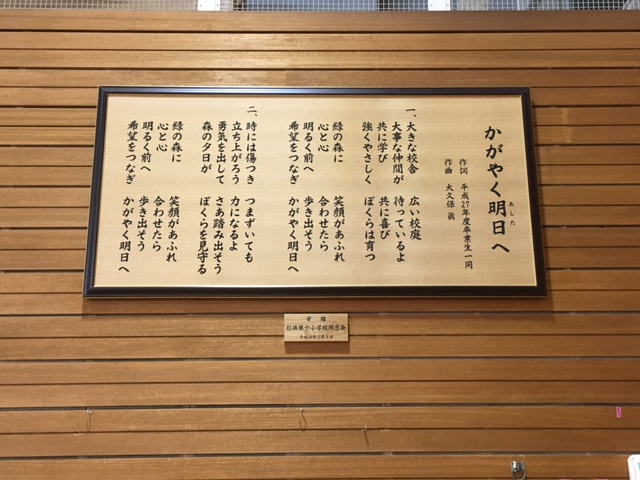 かがやく明日へ
あした
作詞 平成27年度卒業生一同
作曲 大久保 眞
一、大きな校舎 広い校庭
大事な仲間が 待っているよ
共に学び 共に喜び
強くやさしく ぼくらは育つ
緑の森に 笑顔があふれ
心と心 合わせたら
明るく前へ 歩き出そう
希望をつなぎ かがやく明日へ
二、時には傷つき つまずいても
立ち上がろう 力になるよ
勇気を出して さあ踏み出そう
森の夕日が ぼくらを見守る
緑の森に 笑顔があふれ
心と心 合わせたら
明るく前へ 歩き出そう
希望をつなぎ かがやく明日へ
寄贈
杉並第十小学校同窓会